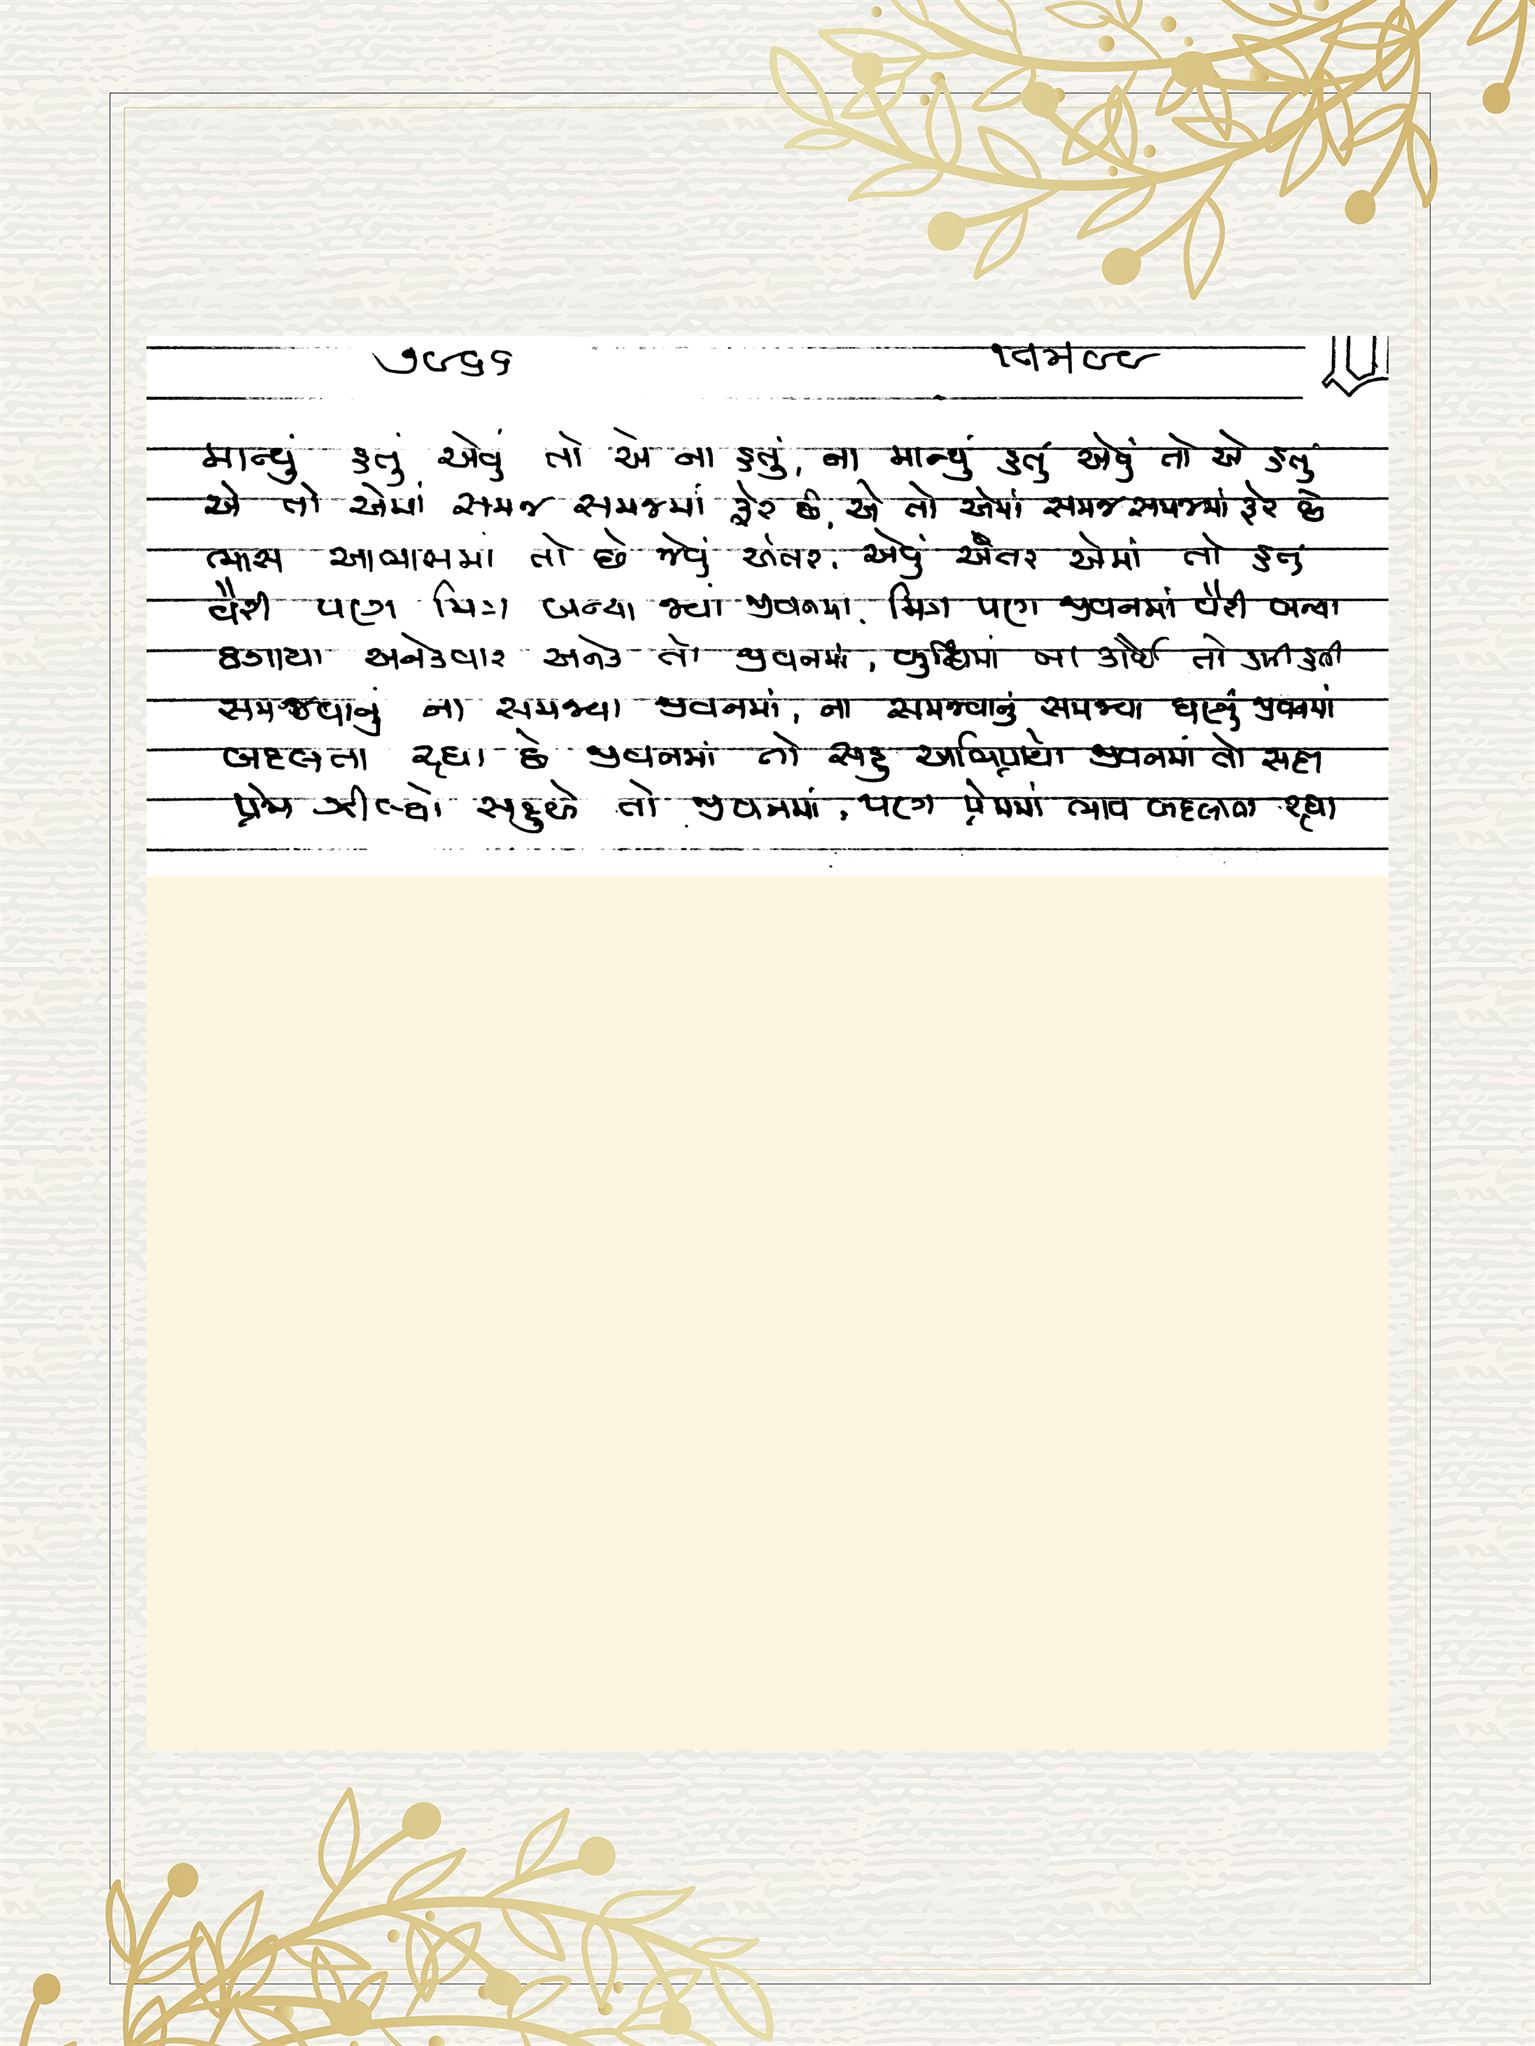 ૭૮૬૬
માન્યું હતું એવું તો એ ના હતું, ના માન્યું હતું એવું તો એ હતું
એ તો એમાં સમજ સમજમાં ફેર છે, એ તો એમાં સમજ સમજમાં ફેર છે
ભાસ આભાસમાં તો છે જેવું અંતર, એવું અંતર એમાં તો હતું
વૈરી પણ મિત્ર બન્યા જ્યાં જીવનમાં, મિત્ર પણ જીવનમાં વૈરી બન્યા
ઠગાયા અનેકવાર અનેક તો જીવનમાં, બુદ્ધિમાં ના કોઈ તો કમી હતી
સમજવાનું ના સમજ્યા જીવનમાં, ના સમજવાનું સમજ્યા ઘણું જીવનમાં
બદલતા રહ્યા છે જીવનમાં તો સહુ અભિપ્રાયો જીવનમાં તો સદા
પ્રેમ ઝીલ્યો સહુએ તો જીવનમાં, પણ પ્રેમમાં ભાવ બદલાતા રહ્યા